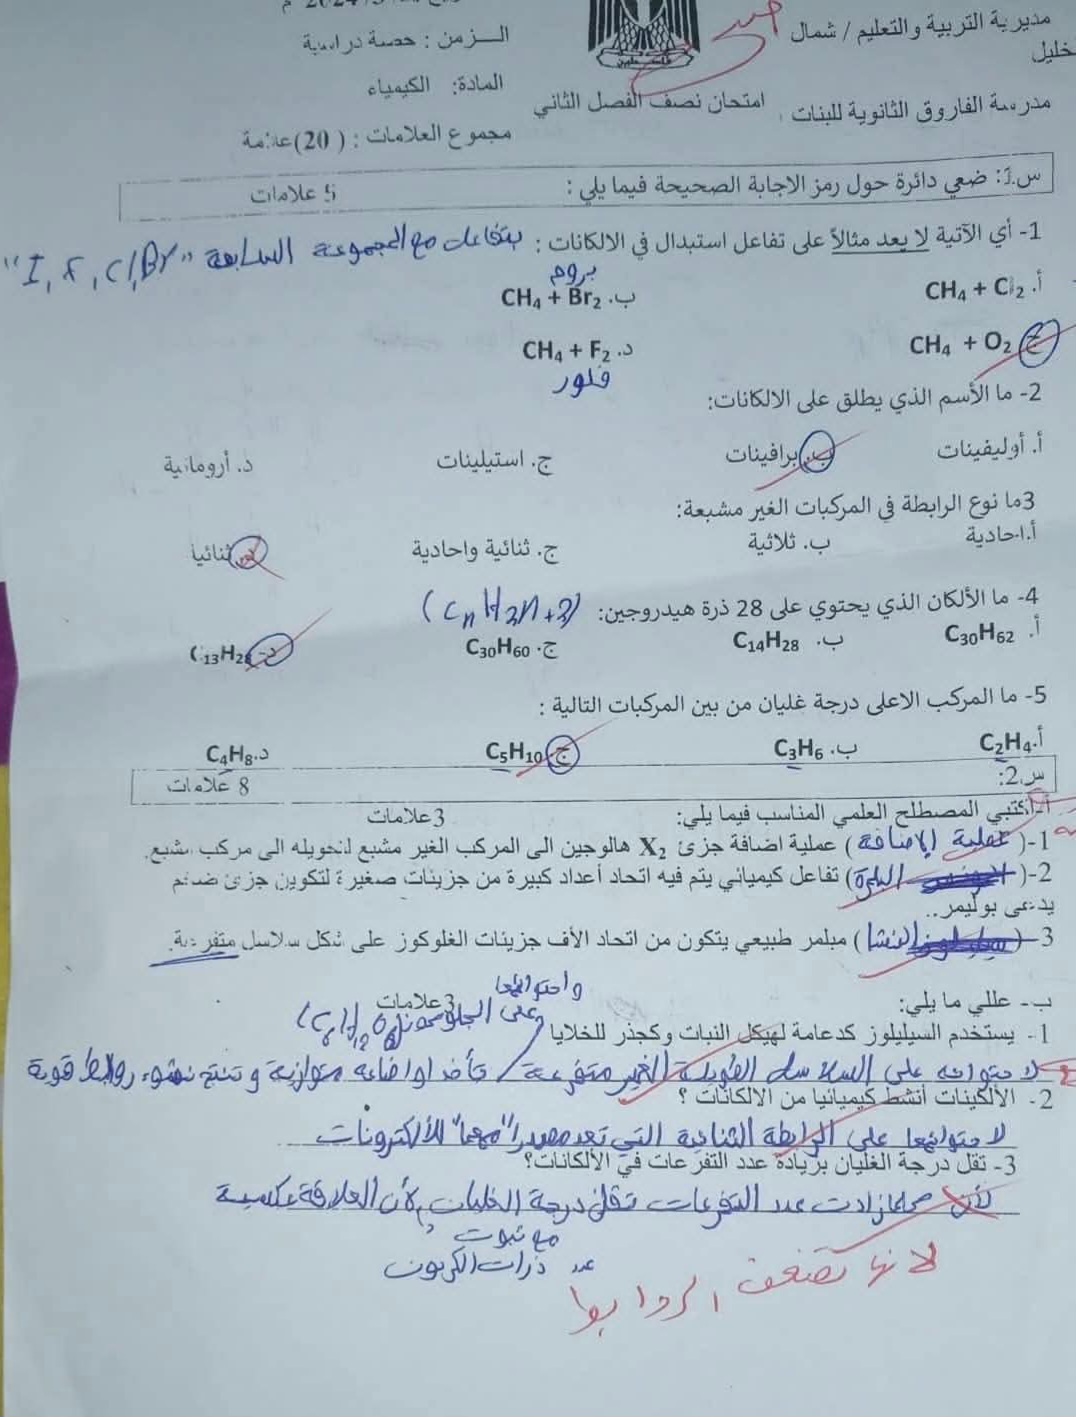 مديرية التربية والتعليم / شمال
خليل
الزمن : حصة دراسية
المادة: الكيمياء
مدرسة الفاروق الثانوية للبنات
امتحان نصف الفصل الثاني
مجموع العلامات : (20) علامة
س1: ضعي دائرة حول رمز الاجابة الصحيحة فيما يلي : 5 علامات
1- أي الآتية لا يعد مثالاً على تفاعل استبدال في الالكانات : يتفاعل مع المجموعة السابعة "I, F, Cl, Br"
بروم
أ. CH4 + Cl2 ب. CH4 + Br2
ج CH4 + O2 د. CH4 + F2
فلور
2- ما الأسم الذي يطلق على الالكانات:
أ. أوليفينات ب. برافينات ج. استيلينات د. أروماتية
3ما نوع الرابطة في المركبات الغير مشبعة:
أ.احادية ب. ثلاثية ج. ثنائية واحادية ثنائيا
4- ما الألكان الذي يحتوي على 28 ذرة هيدروجين: (CnH2n+2)
أ. C30H62 ب. C14H28 ج. C30H60 د- C13H28
5- ما المركب الاعلى درجة غليان من بين المركبات التالية :
أ. C2H4 ب. C3H6 ج C5H10 د. C4H8
س2: 8 علامات
أ.اكتبي المصطلح العلمي المناسب فيما يلي: 3علامات
1-( عملية الإضافة ) عملية اضافة جزئ X2 هالوجين الى المركب الغير مشبع لتحويله الى مركب مشبع.
2-( البلمرة) تفاعل كيميائي يتم فيه اتحاد أعداد كبيرة من جزيئات صغيرة لتكوين جزئ ضخم
يدعى بوليمر..
3 ( النشا ) مبلمر طبيعي يتكون من اتحاد الأف جزيئات الغلوكوز على شكل سلاسل متفرعة.
ب- عللي ما يلي: 3علامات
واحتوائها
على الجلوكوز C6H12O6)
1- يستخدم السيليلوز كدعامة لهيكل النبات وكجذر للخلايا
لاحتوائه على السلاسل الطويلة الغير متفرعة / تأخذ اوضاعه متوازية وتنتج نشوء روابط قوية
2- الألكينات أنشط كيميائيا من الالكانات ؟
لاحتوائها على الرابطة الثنائية التي تعد مصدراً "مهما" للألكترونات
3- تقل درجة الغليان بزيادة عدد التفرعات في الألكانات؟
لأن كلما زادت عدد التفرعات تقل درجة الغليان, لأن العلاقة عكسية
مع ثبوت
عدد ذرات الكربون
لانها تضعف الروابط